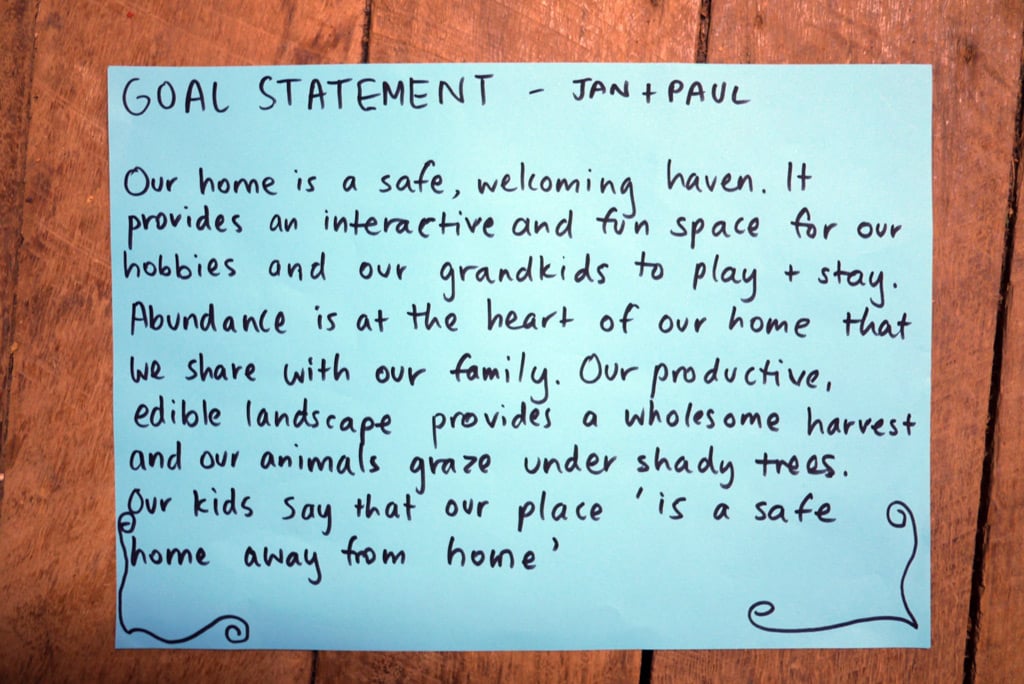 GOAL STATEMENT - JAN + PAUL
Our home is a safe, welcoming haven. It
provides an interactive and fun space for our
hobbies and our grandkids to play + stay.
Abundance is at the heart of our home that
we share with our family. Our productive,
edible landscape provides a wholesome harvest
and our animals graze under shady trees.
Our kids say that our place 'is a safe
home away from home'